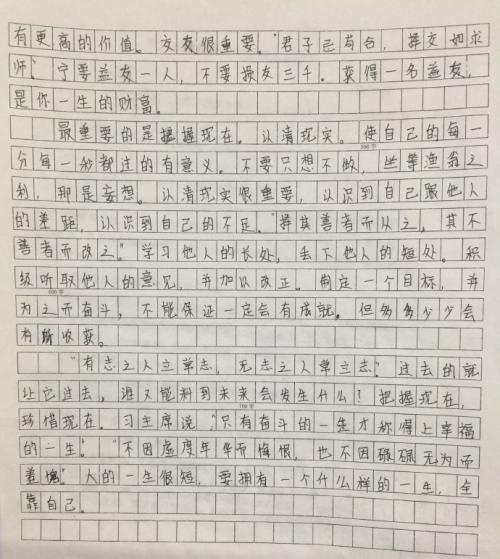 有更高的价值。交友很重要。"君子忌苟合，择交如求
师"。宁要益友一人，不要损友三千。获得一名益友，
是你一生的财富。
最重要的是握握现在。认清现实。使自己的每一
500字
分每一秒都过的有意义。不要只想不做，坐等渔翁之
利，那是妄想。认清现实很重要，认识到自己跟他人
的差距，认识到自己的不足。"择其善者而从之，其不
善者而改之"学习他人的长处，丢下他人的短处。积
级听取他人的意见，并加以改正。制定一个目标，并
600字
为之而奋斗，不能保证一定会有成就。但多多少少会
有所收获。
"有志之人立常志，无志之人常立志"过去的就
让它过去，谁又能料到未来会发生什么！把握现在，
700字
珍惜现在。习主席说，"只有奋斗的一生才称得上幸福
的一生"。"不因虚度年华而悔恨，也不因碌碌无为而
羞愧"人的一生很短，要拥有一个什么样的一生，全
靠自己。